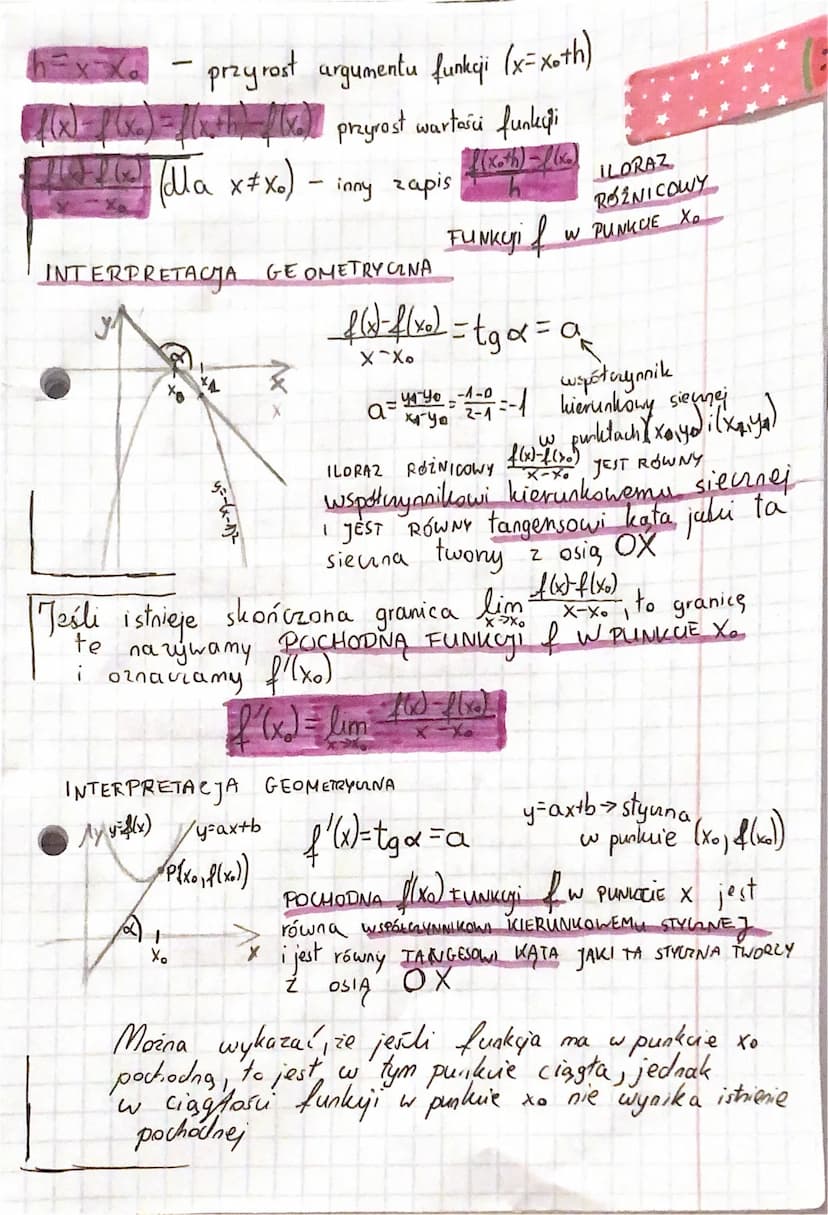 h = x - x₀ – przyrost argumentu funkcji (x = x₀+h)
f(x) - f(x₀) = f(x₀+h) - f(x₀) przyrost wartości funkcji
f(x)-f(x₀) / x - x₀ (dla x ≠ x₀) – inny zapis f(x₀+h) - f(x₀) / h ILORAZ
RÓŻNICOWY
FUNKCJI f W PUNKCIE X₀
INTERPRETACJA GEOMETRYCZNA
y
α
x₀ x₁
x
f(x)-f(x₀) / x-x₀ = tg α = a
współczynnik
kierunkowy siecznej
w punktach (x₀,y₀) i (x₁,y₁)
a = y₁-y₀ / x₁-y₀ = -1-0 / 2-1 = -1
ILORAZ RÓŻNICOWY f(x)-f(x₀) / x-x₀ JEST RÓWNY
współczynnikowi kierunkowemu siecznej
I JEST RÓWNY tangensowi kąta jaki ta
sieczna tworzy z osią OX
Jeśli istnieje skończona granica lim x→x₀ f(x)-f(x₀) / x-x₀, to granicę
tę nazywamy POCHODNĄ FUNKCJI f W PUNKCIE X₀
i oznaczamy f'(x₀)
f'(x₀) = lim x→x₀ f(x) - f(x₀) / x - x₀
INTERPRETACJA GEOMETRYCZNA
y y=f(x) y=ax+b
P(x₀, f(x₀))
α
x₀ x
f'(x) = tg α = a
y=ax+b → styczna
w punkcie (x₀, f(x₀))
POCHODNA f'(x₀) FUNKCJI f W PUNKCIE X jest
równa WSPÓŁCZYNNIKOWI KIERUNKOWEMU STYCZNEJ
i jest równy TANGESOWI KĄTA JAKI TA STYCZNA TWORZY
Z OSIĄ OX
Można wykazać, że jeśli funkcja ma w punkcie x₀
pochodną, to jest w tym punkcie ciągła, jednak
w ciągłości funkcji w punkcie x₀ nie wynika istnienie
pochodnej